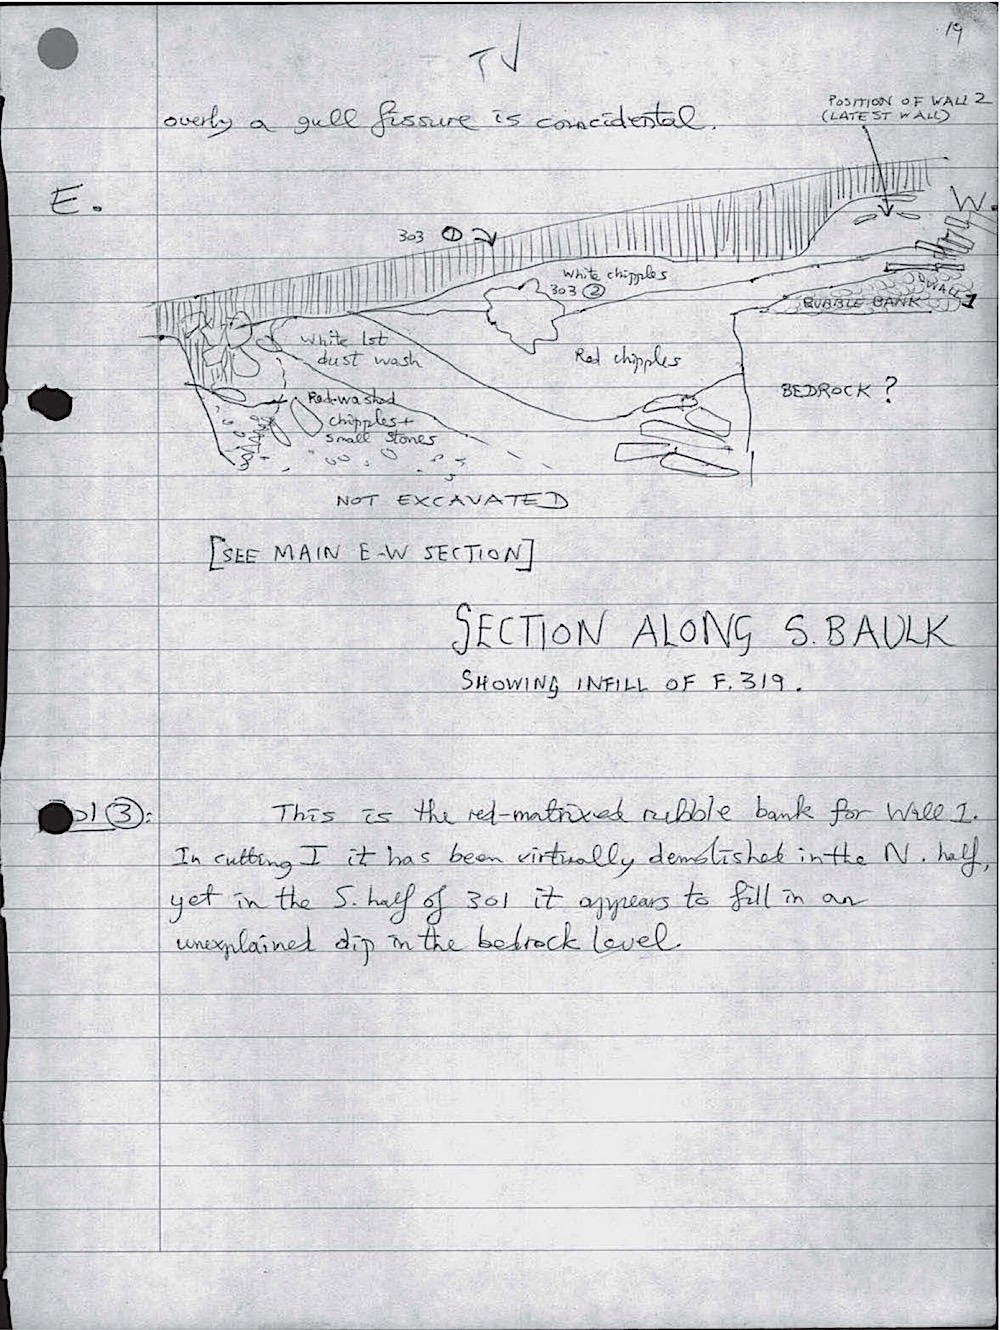 19
TV
overly a gull fissure is coincidental.
POSITION OF WALL 2
(LATEST WALL)
E.
W.
303 ①
White chipples
303 ②
WALL 1
RUBBLE BANK
White lst
dust wash
Red chipples
BEDROCK ?
Red-washed
chipples +
small stones
NOT EXCAVATED
[SEE MAIN E-W SECTION]
SECTION ALONG S. BAULK
SHOWING INFILL OF F. 319.
01 ③: This is the red-matrixed rubble bank for Wall I.
In cutting I it has been virtually demolished in the N. half,
yet in the S. half of 301 it appears to fill in an
unexplained dip in the bedrock level.